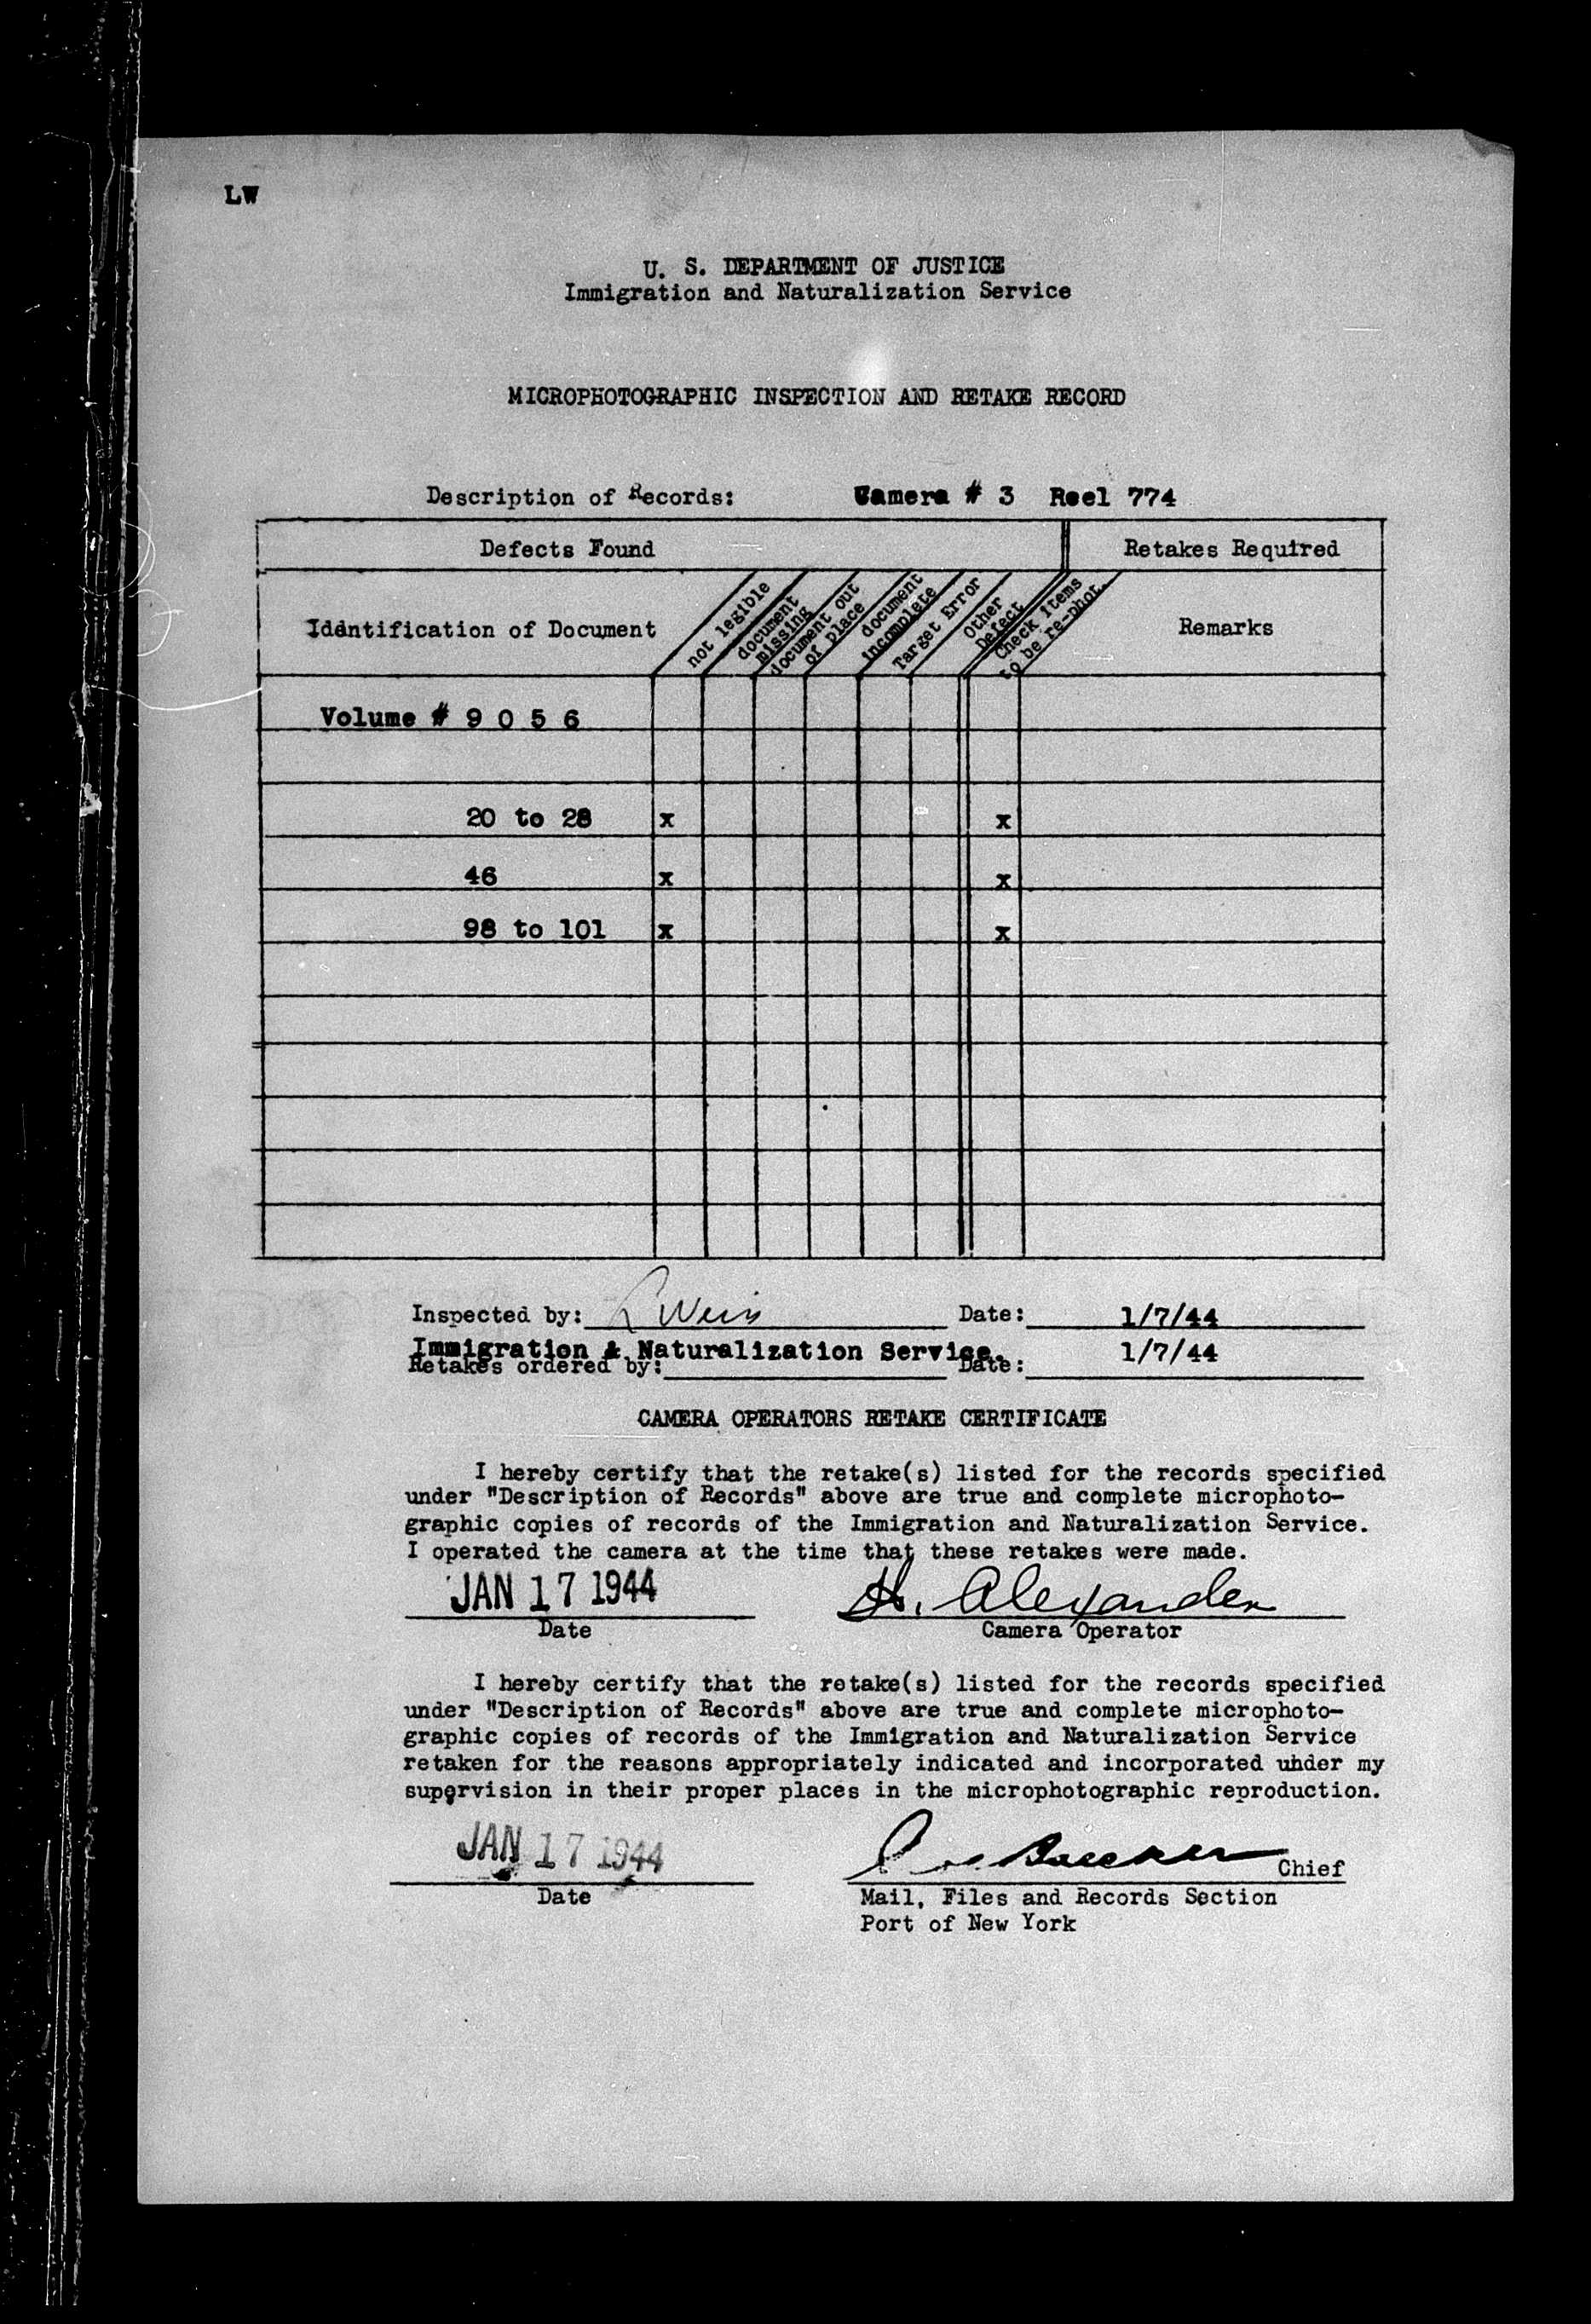 LW
U. S. DEPARTMENT OF JUSTICE
Immigration and Naturalization Service
MICROPHOTOGRAPHIC INSPECTION AND RETAKE RECORD
Description of Records: Camera # 3 Reel 774
Defects Found Retakes Required
Identification of Document
not legible
document
missing
document out
of place
document
incomplete
Target Error
Other
Defect
Check items
to be re-phot.
Remarks
Volume # 9 0 5 6
20 to 28 x x
46 x x
98 to 101 x x
Inspected by: L Weis Date: 1/7/44
Immigration & Naturalization Service. 1/7/44
Retakes ordered by: Date:
CAMERA OPERATORS RETAKE CERTIFICATE
I hereby certify that the retake(s) listed for the records specified
under "Description of Records" above are true and complete microphoto-
graphic copies of records of the Immigration and Naturalization Service.
I operated the camera at the time that these retakes were made.
JAN 17 1944 H. Alexander
Date Camera Operator
I hereby certify that the retake(s) listed for the records specified
under "Description of Records" above are true and complete microphoto-
graphic copies of records of the Immigration and Naturalization Service
retaken for the reasons appropriately indicated and incorporated under my
supervision in their proper places in the microphotographic reproduction.
JAN 17 1944 Chief
Date Mail, Files and Records Section
Port of New York